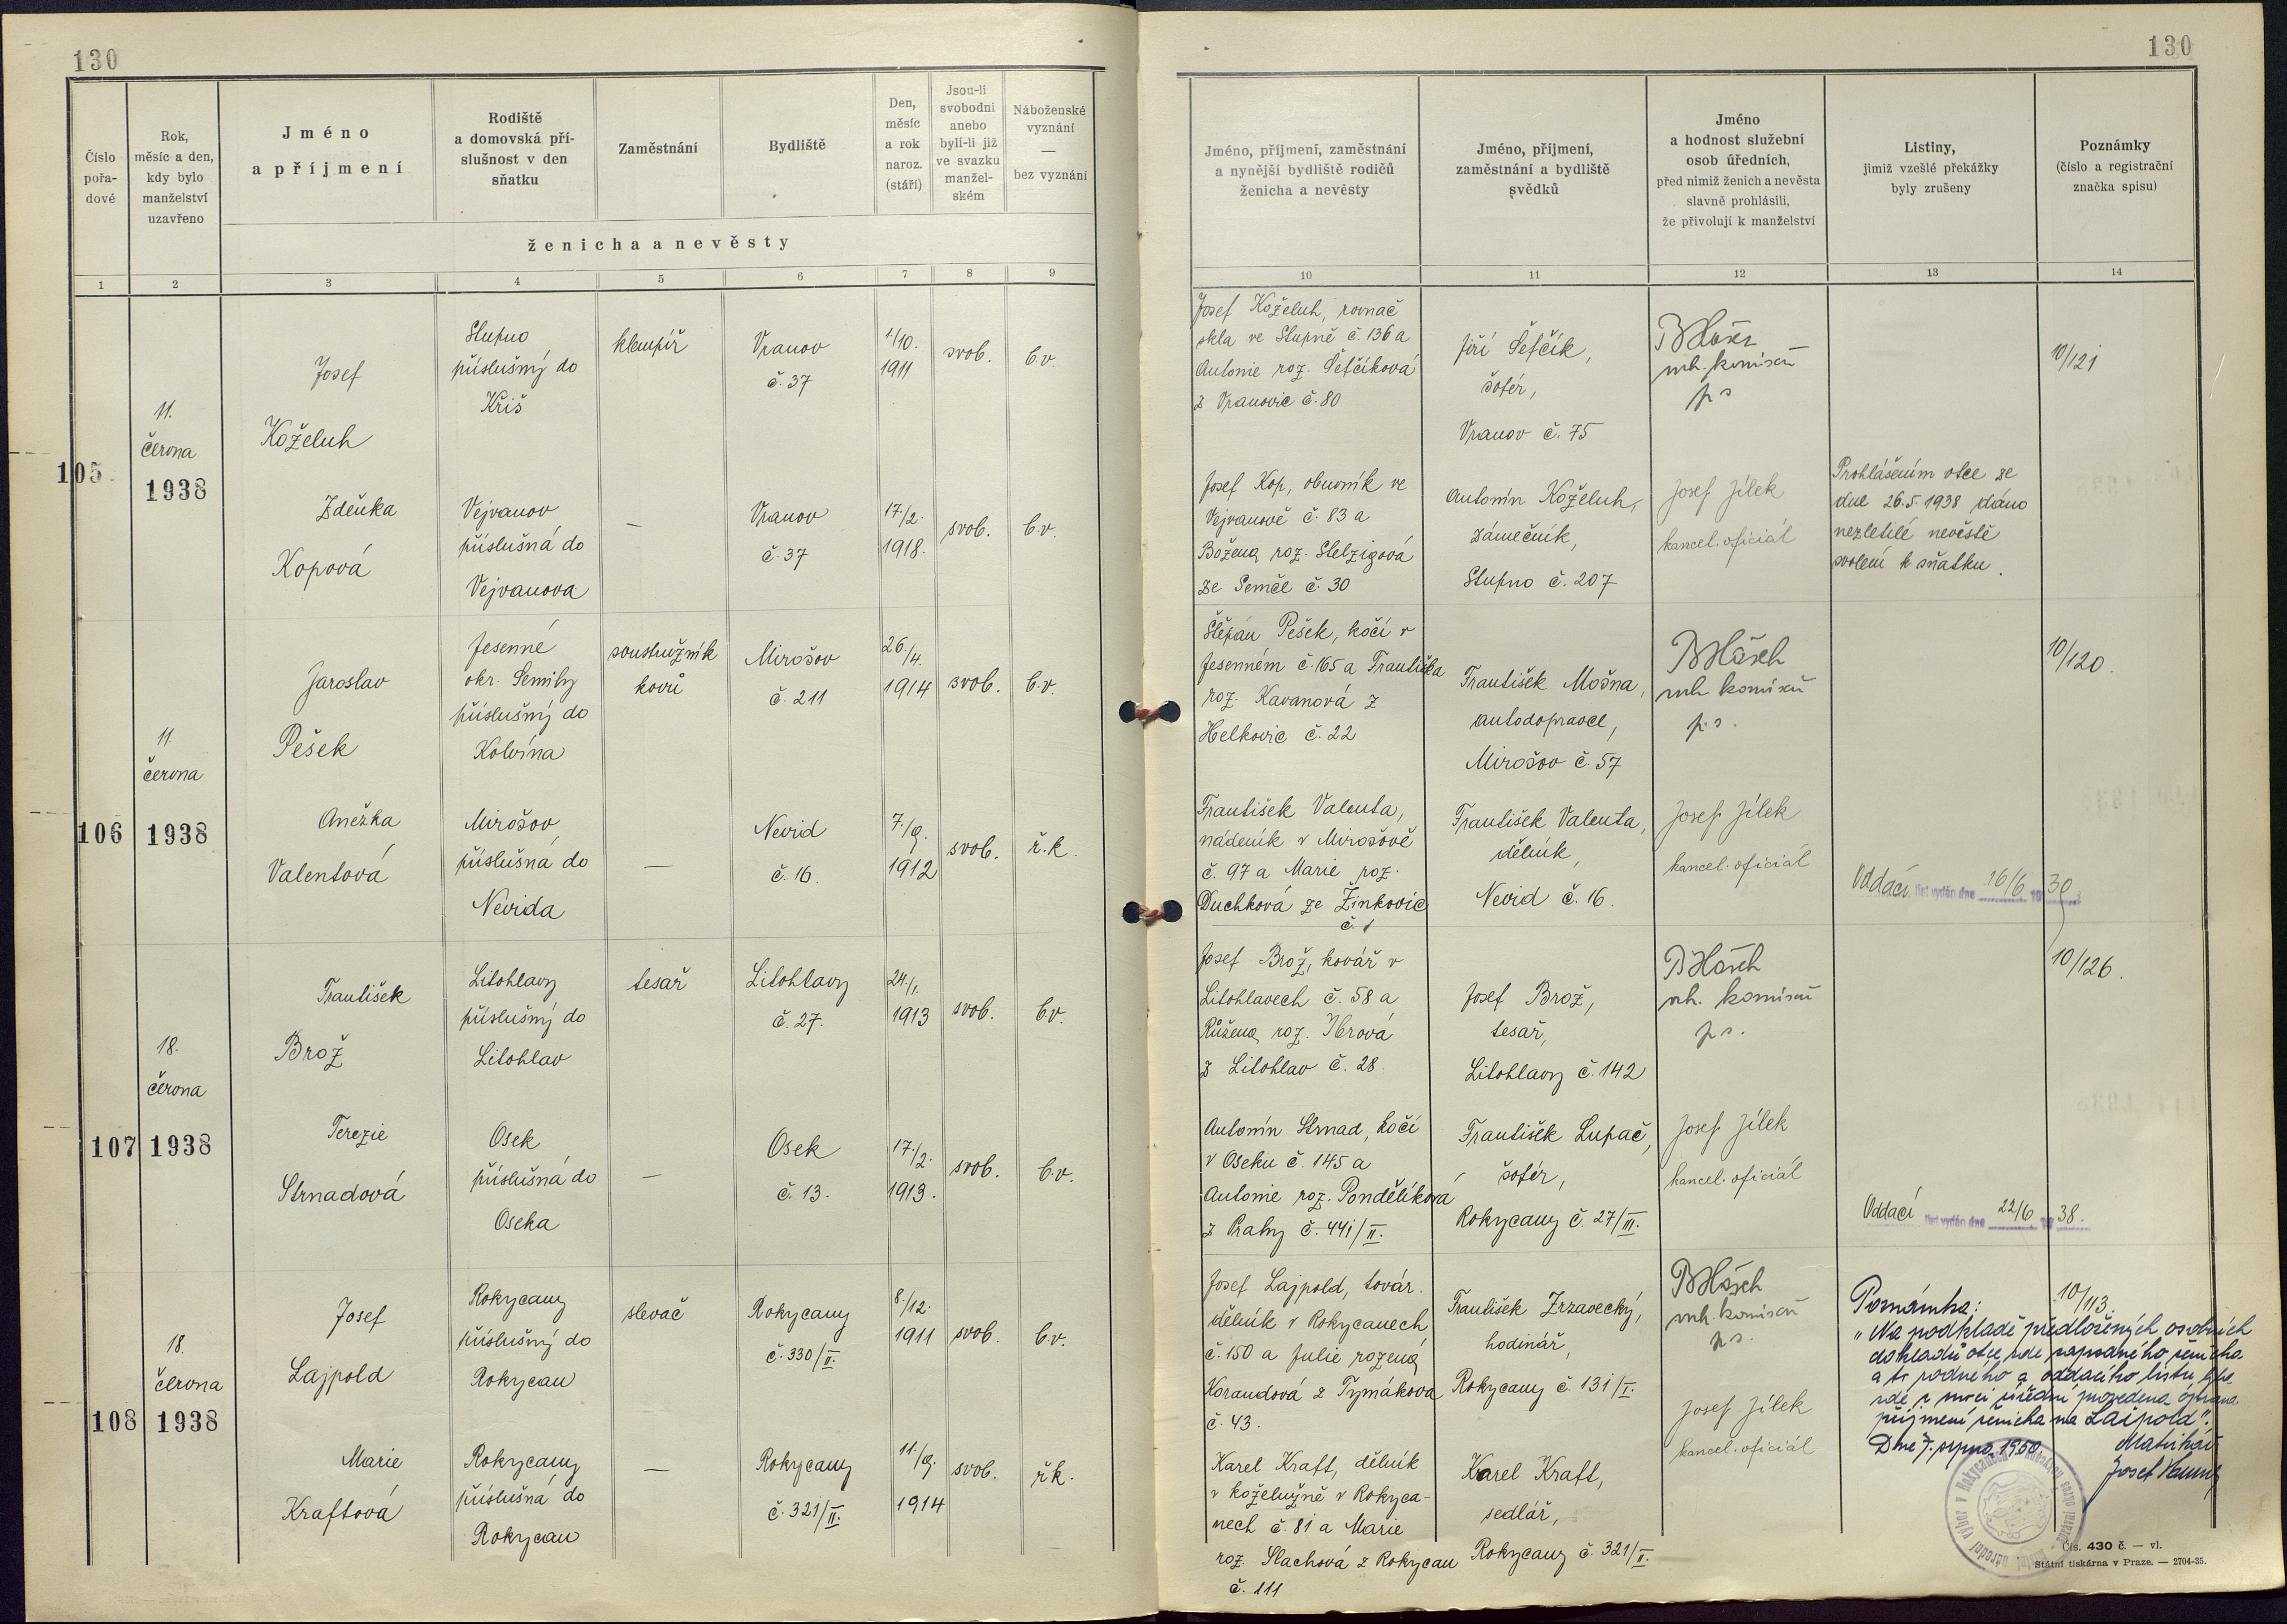 130
130
Číslo pořa- dové
Rok, měsíc a den, kdy bylo manželství uzavřeno
Jméno a příjmení
Rodiště a domovská pří- slušnost v den sňatku
Zaměstnání
Bydliště
Den, měsíc a rok naroz. (stáří)
Jsou-li svobodni anebo byli-li již ve svazku manžel- ském
Náboženské vyznání — bez vyznání
ženicha a nevěsty
Jméno, příjmení, zaměstnání a nynější bydliště rodičů ženicha a nevěsty
Jméno, příjmení, zaměstnání a bydliště svědků
Jméno a hodnost služební osob úředních, před nimiž ženich a nevěsta slavně prohlásili, že přivolují k manželství
Listiny, jimiž vzešlé překážky byly zrušeny
Poznámky (číslo a registrační značka spisu)
1 2 3 4 5 6 7 8 9 10 11 12 13 14
105.
11.
června
1938
Josef
Koželuh
Stupno
příslušný do
Kříš
klempíř
Vranov
č. 37
1./10.
1911
svob.
b.v.
Josef Koželuh, rovnač
skla ve Stupně č. 136 a
Antonie roz. Šefčíková
z Vranovic č. 80
Jiří Šefčík,
šofér,
Vranov č. 75
komisař
10/121
Zdeňka
Kopová
Vejvanov
příslušná do
Vejvanova
—
Vranov
č. 37
17/2.
1918.
svob.
b.v.
Josef Kop, obuvník ve
Vejvanově č. 83 a
Božena roz. Stelzigová
ze Semče č. 30
Antonín Koželuh,
zámečník,
Stupno č. 207
Josef Jílek
kancel. oficiál
Prohlášením otce ze
dne 26.5.1938 dáno
nezletilé nevěstě
svolení k sňatku.
106
11.
června
1938
Jaroslav
Pešek
Jesenné
okr. Semily
příslušný do
Kolvína
soustružník
kovů
Mirošov
č. 211
26./4.
1914
svob.
b.v.
Štěpán Pešek, kočí v
Jesenném č. 165 a Františka
roz. Kavanová z
Helkovic č. 22
František Mošna,
autodopravce,
Mirošov č. 57
komisař
p.s.
10/120.
Anežka
Valentová
Mirošov
příslušná do
Nevida
—
Nevid
č. 16.
7./9.
1912
svob.
ř.k.
František Valenta,
nádeník v Mirošově
č. 97 a Marie roz.
Duchková ze Žinkovic
č. 1
František Valenta,
dělník,
Nevid č. 16.
Josef Jílek
kancel. oficiál
Oddací list vydán dne 16/6 19
107
18.
června
1938
František
Brož
Litohlavy
příslušný do
Litohlav
tesař
Litohlavy
č. 27.
24./1.
1913
svob.
b.v.
Josef Brož, kovář v
Litohlavech č. 58 a
Růžena roz.
z Litohlav č. 28.
Josef Brož,
tesař,
Litohlavy č. 142
komisař
p.s.
10/126.
Terezie
Strnadová
Osek
příslušná do
Oseka
—
Osek
č. 13.
17./2.
1913.
svob.
b.v.
Antonín Strnad, kočí
v Oseku č. 145 a
Antonie roz. Pondělíková
z Prahy č. 441/II.
František Lupač,
šofér,
Rokycany č. 27/III.
Josef Jílek
kancel. oficiál
Oddací list vydán dne 22/6 19 38.
108
18.
června
1938
Josef
Lajpold
Rokycany
příslušný do
Rokycan
slevač
Rokycany
č. 330/II.
8./12.
1911
svob.
b.v.
Josef Lajpold, továr.
dělník v Rokycanech
č. 150 a Julie rozená
Korandová z Tymákova
č. 43.
František Zrzavecký,
hodinář,
Rokycany č. 131/I.
komisař
p.s.
10/113.
Poznámka:
"Na podkladě předložených osobních
dokladů otce zde zapsaného ženicha
a to rodného a oddacího listu
zde z moci úřední provedena oprava
příjmení ženicha na Laipold".
Dne 7. srpna 1950.
Matrikář
Josef
Marie
Kraftová
Rokycany
příslušná do
Rokycan
—
Rokycany
č. 321/II.
11./9.
1914
svob.
řk.
Karel Kraft, dělník
v koželužně v Rokyca-
nech č. 81 a Marie
roz. Slachová z Rokycan
č. 111
Karel Kraft,
sedlář,
Rokycany č. 321/II.
Josef Jílek
kancel. oficiál
Čís. 430 č. — vl.
Státní tiskárna v Praze. — 2704-35.